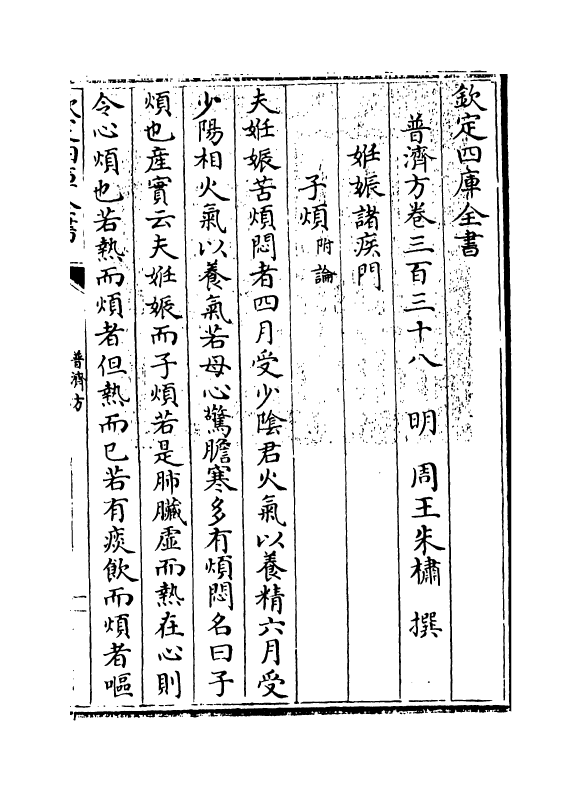 欽定四庫全書
普濟方卷三百三十八　明　周王朱橚　撰
姙娠諸疾門
子煩附論
夫姙娠苦煩悶者四月受少陰君火氣以養精六月受
少陽相火氣以養氣若母心驚膽寒多有煩悶名曰子
煩也產實云夫姙娠而子煩若是肺臟虛而熱在心則
令心煩也若熱而煩者但熱而已若有痰飲而煩者嘔
普濟方
一